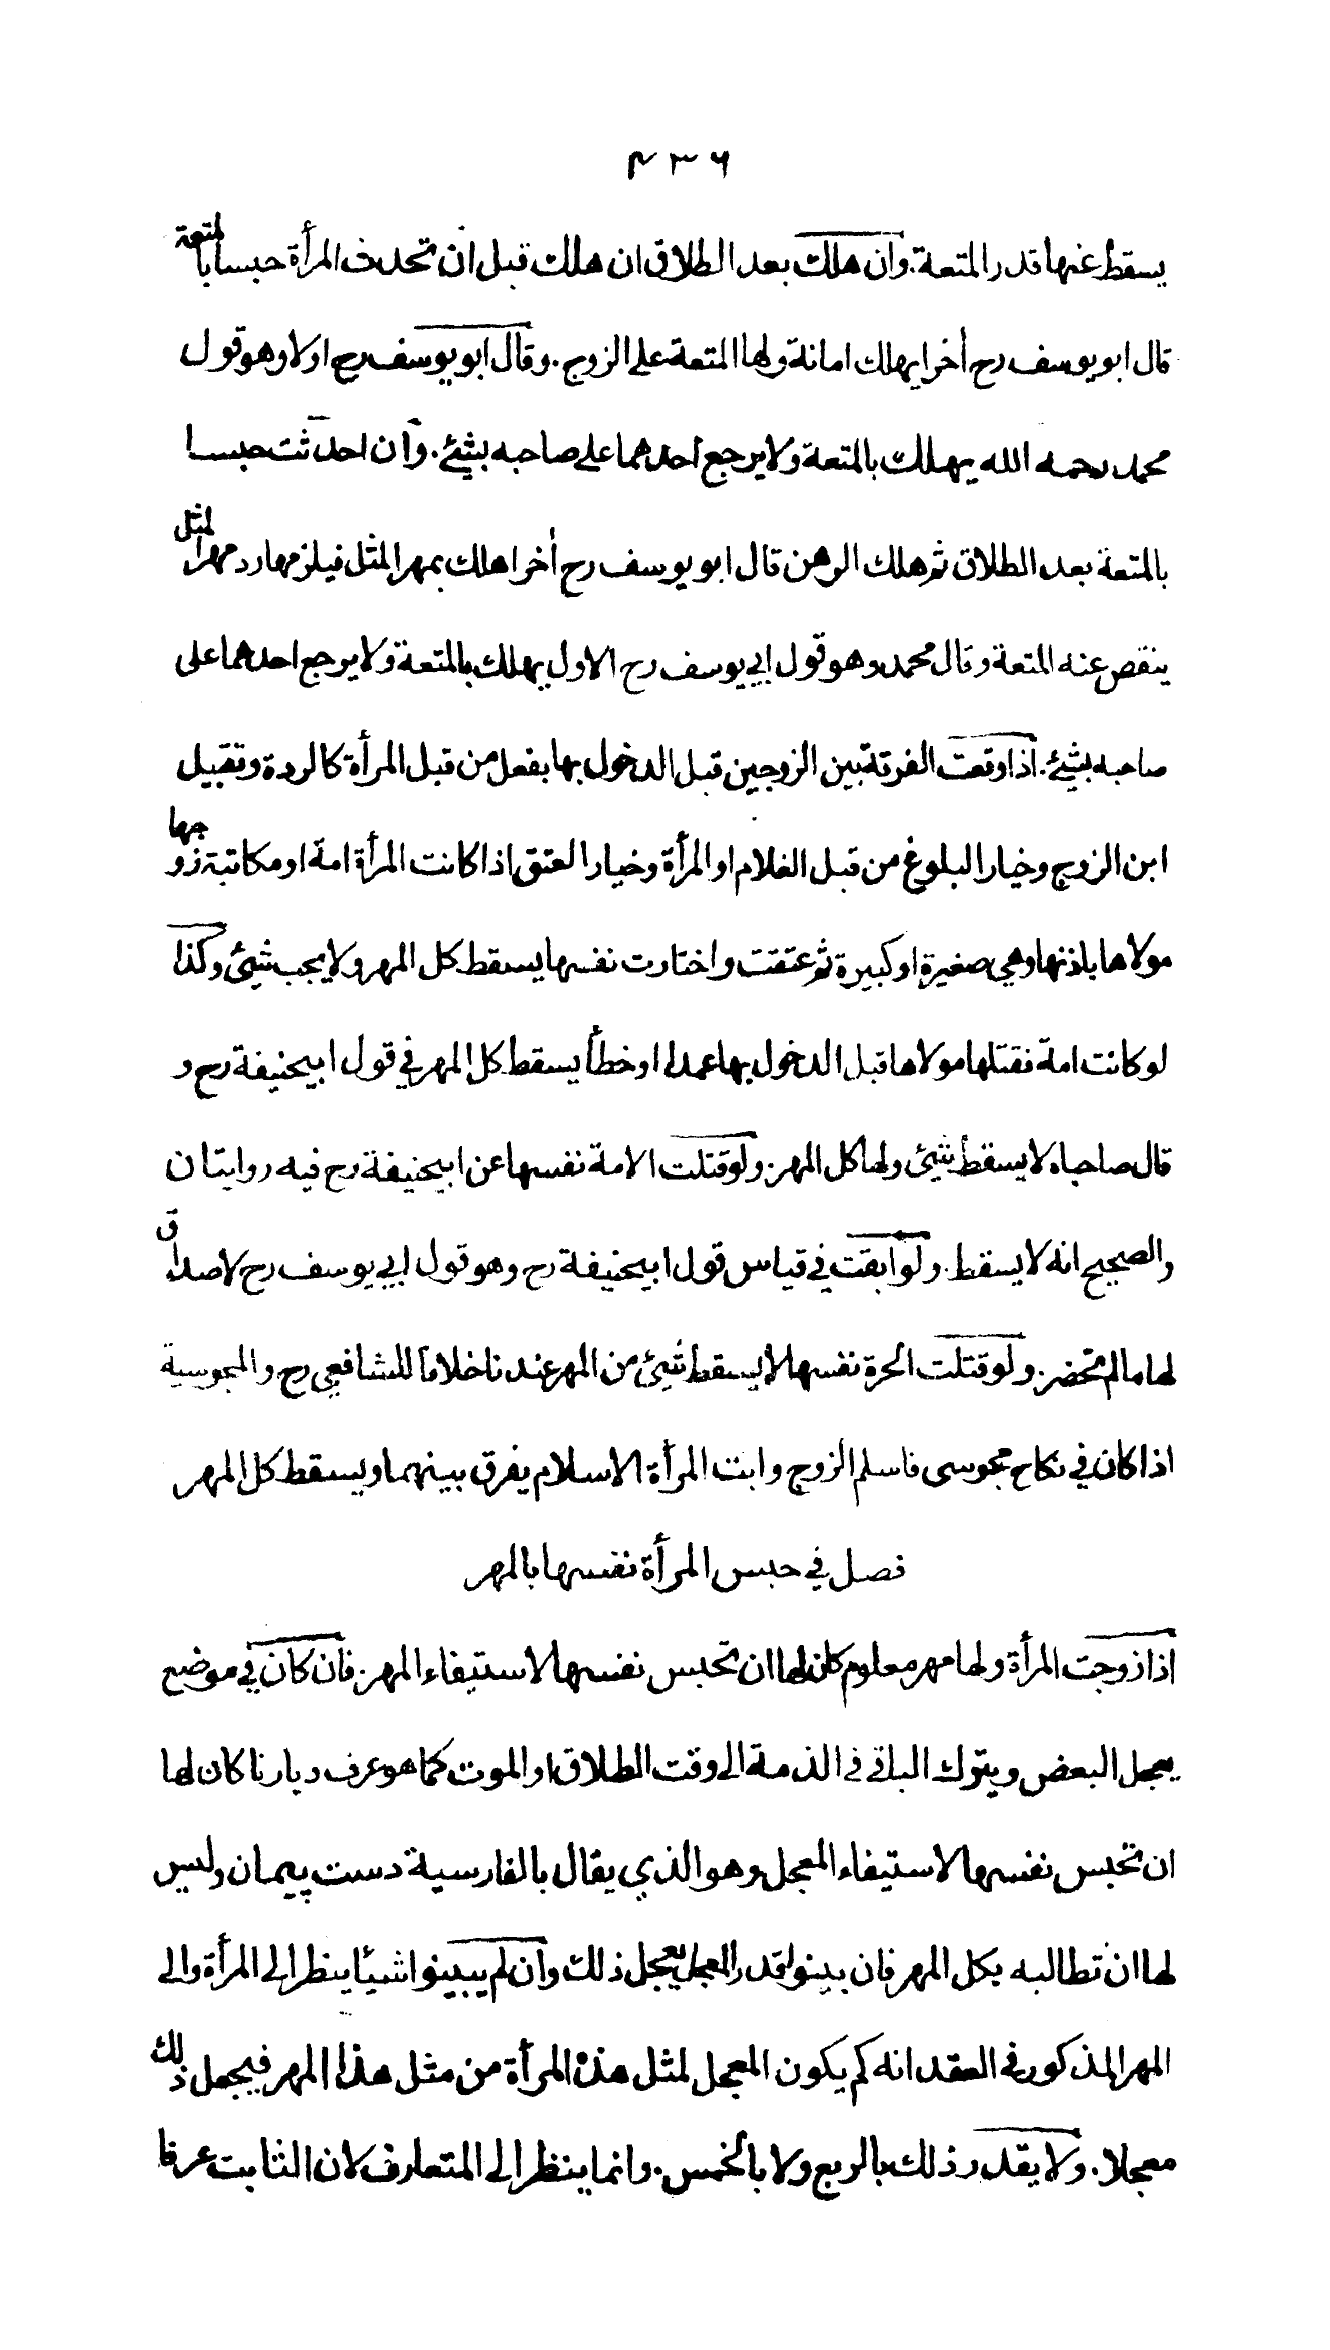 ۴۳۶
يسقط عنها قدر المتعة. وان هلك بعد الطلاق ان هلك قبل ان تحدث المرأة حبسا بالمتعة
قال ابو يوسف رح أخرا يهلك امانة ولها المتعة على الزوج. وقال ابو يوسف رح اولا وهو قول
محمد رحمه الله يهلك بالمتعة ولا يرجع احدهما على صاحبه بشئ. وان احدثت حبسا
بالمتعة بعد الطلاق ثم هلك الرهن قال ابو يوسف رح أخرا هلك بمهر المثل فيلزمها رد مهر المثل
ينقص عنه المتعة وقال محمد وهو قول ابي يوسف رح الاول يهلك بالمتعة ولا يرجع احدهما على
صاحبه بشئ. اذا وقعت الفرقة بين الزوجين قبل الدخول بها بفعل من قبل المرأة كالردة وتقبيل
ابن الزوج وخيار البلوغ من قبل الغلام او المرأة وخيار العتق اذا كانت المرأة امة او مكاتبة زوجها
مولاها باذنها وهي صغيرة او كبيرة ثم عتقت واختارت نفسها يسقط كل المهر ولا يجب شئ وكذا
لو كانت امة فقتلها مولاها قبل الدخول بها عمدا او خطأ يسقط كل المهر في قول ابيحنيفة رح و
قال صاحباه لا يسقط شئ ولها كل المهر. ولو قتلت الامة نفسها عن ابيحنيفة رح فيه روايتان
والصحيح انه لا يسقط. ولو ابقت في قياس قول ابيحنيفة رح وهو قول ابي يوسف رح لا صداق
لها ما لم تحضر. ولو قتلت الحرة نفسها لا يسقط شئ من المهر عندنا خلافا للشافعي رح والمجوسية
اذا كان في نكاح مجوسى فاسلم الزوج وابت المرأة الاسلام يفرق بينهما ويسقط كل المهر
فصل في حبس المرأة نفسها بالمهر
اذا زوجت المرأة ولها مهر معلوم كان لها ان تحبس نفسها لاستيفاء المهر. فان كان في موضع
يعجل البعض ويترك الباقي في الذمة الى وقت الطلاق او الموت كما هو عرف ديارنا كان لها
ان تحبس نفسها لاستيفاء المعجل وهو الذي يقال بالفارسية دست پيمان وليس
لها ان تطالبه بكل المهر فان بينوا قدر المعجل يعجل ذلك وان لم يبينوا شيئا ينظر الى المرأة والى
المهر المذكور في العقد انه كم يكون المعجل لمثل هذه المرأة من مثل هذا المهر فيجعل ذلك
معجلا. ولا يقدر ذلك بالربع ولا بالخمس. وانما ينظر الى المتعارف لان الثابت عرفا